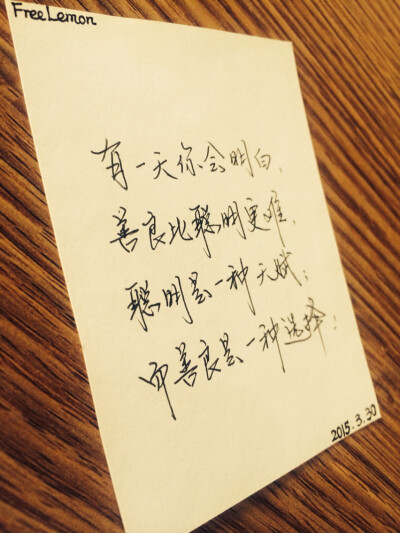 FreeLemon.
有一天你会明白,
善良比聪明更难.
聪明是一种天赋;
而善良是一种选择;
2015.3.30